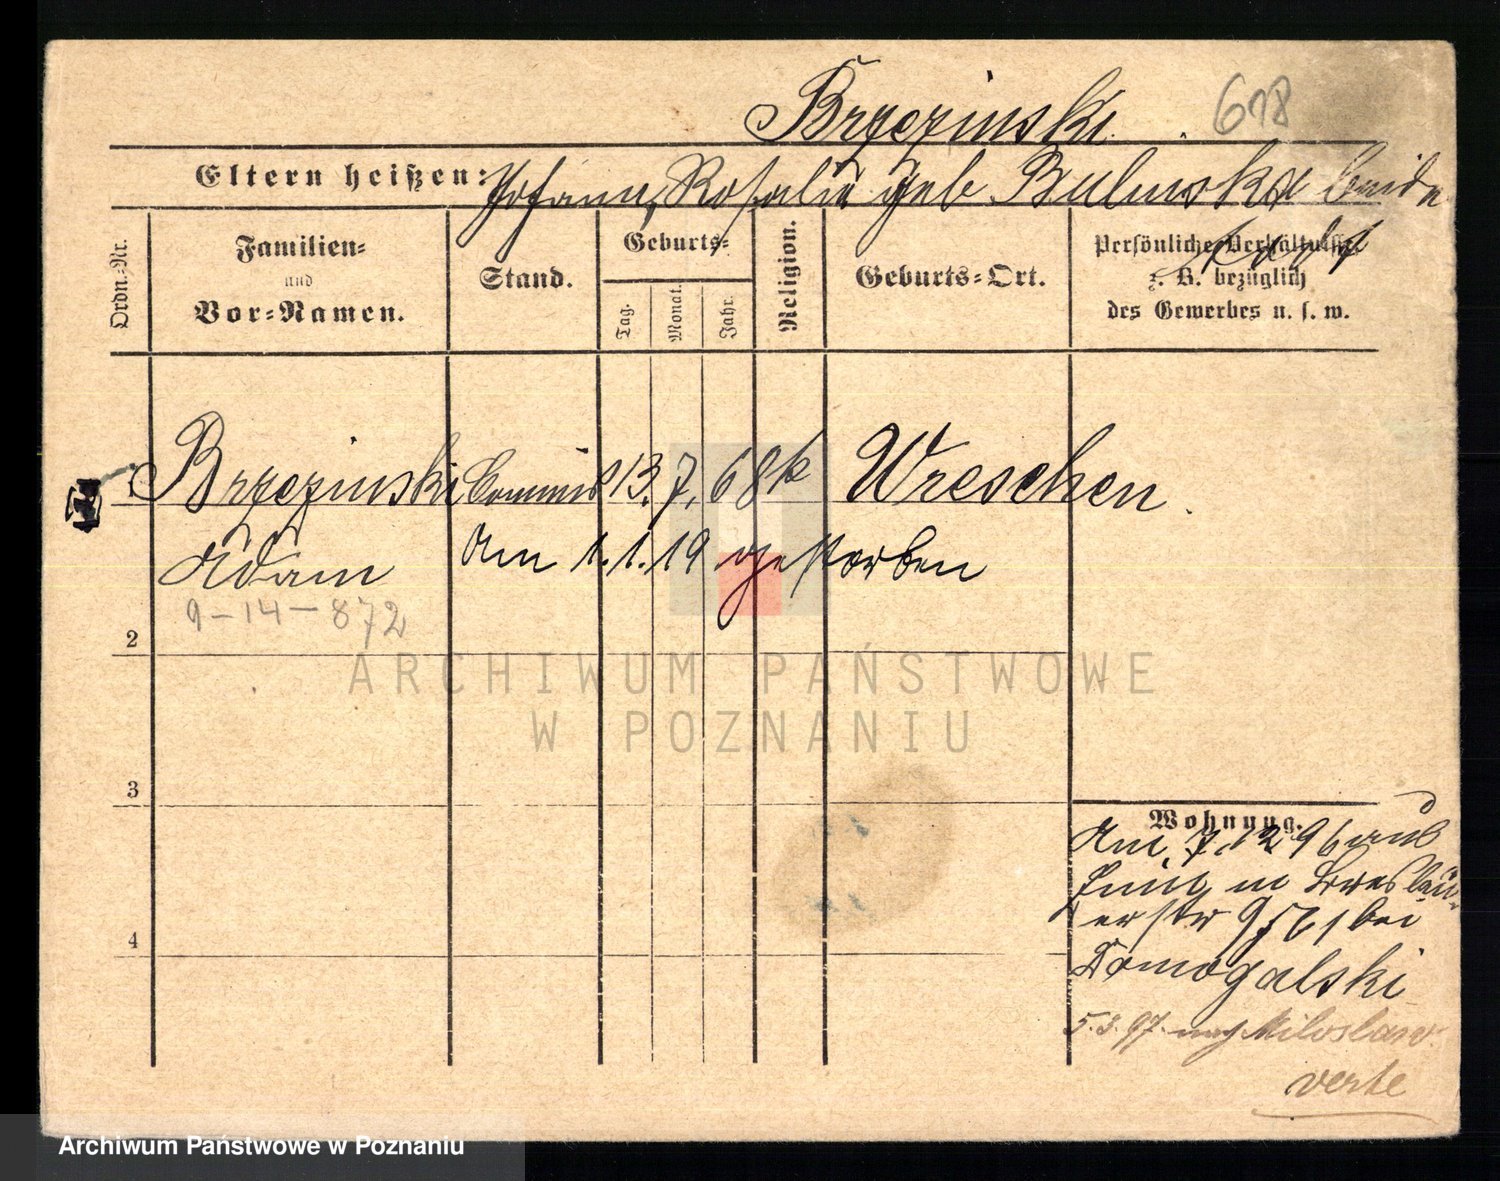 Brzezinski. 618
Eltern heißen: Johann, Rosalie geb Bulinska beide
todt
Ordn.-Nr.
Familien-
und
Vor-Namen.
Stand.
Geburts-
Tag.
Monat.
Jahr.
Religion.
Geburts-Ort.
Persönliche Verhältnisse
z. B. bezüglich
des Gewerbes u. s. w.
1 Brzezinski Commis 13. 7. 68 k Wreschen.
Adam Am 1. 1. 19 gestorben
9-14-872
2
3
4
Wohnung.
Am 7. 12 96 aus
in Breslau-
erstr 9 bei
Domogalski
5. 3. 97. nach Miloslaw.
verte
ARCHIWUM PAŃSTWOWE
W POZNANIU
Archiwum Państwowe w Poznaniu